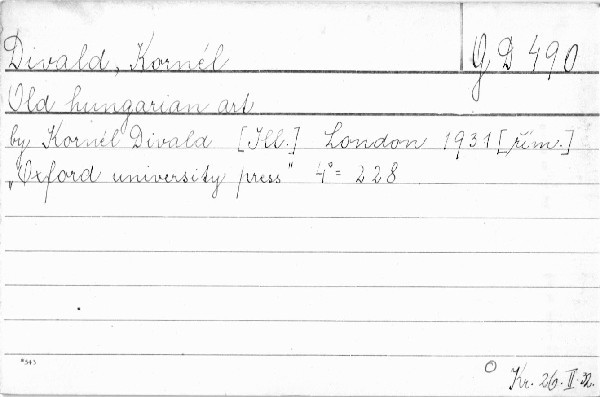 Divald, Kornél
G D 490
Old hungarian art
by Kornél Divald [Ill.] London 1931 [řím.]
„Oxford university press“ 4°= 228
*543
Kr. 26. II. 32.